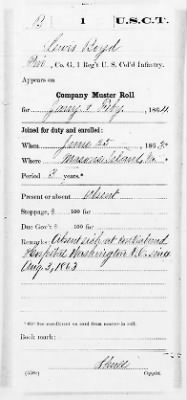 B 1 U.S.C.T.
Lewis Boyd
Pvt, Co. G, 1 Reg't U. S. Col'd Infantry.
Appears on
Company Muster Roll
for Jany & Feby, 1864.
Joined for duty and enrolled:
When June 25, 1863.
Where Masons Island, Va
Period 3 years.*
Present or absent Absent
Stoppage, $ 100 for
Due Gov't $ 100 for
Remarks: Absent sick at contraband
Hospital Washington D.C. since
Aug. 3, 1863
Book mark:
(358) Copyist.